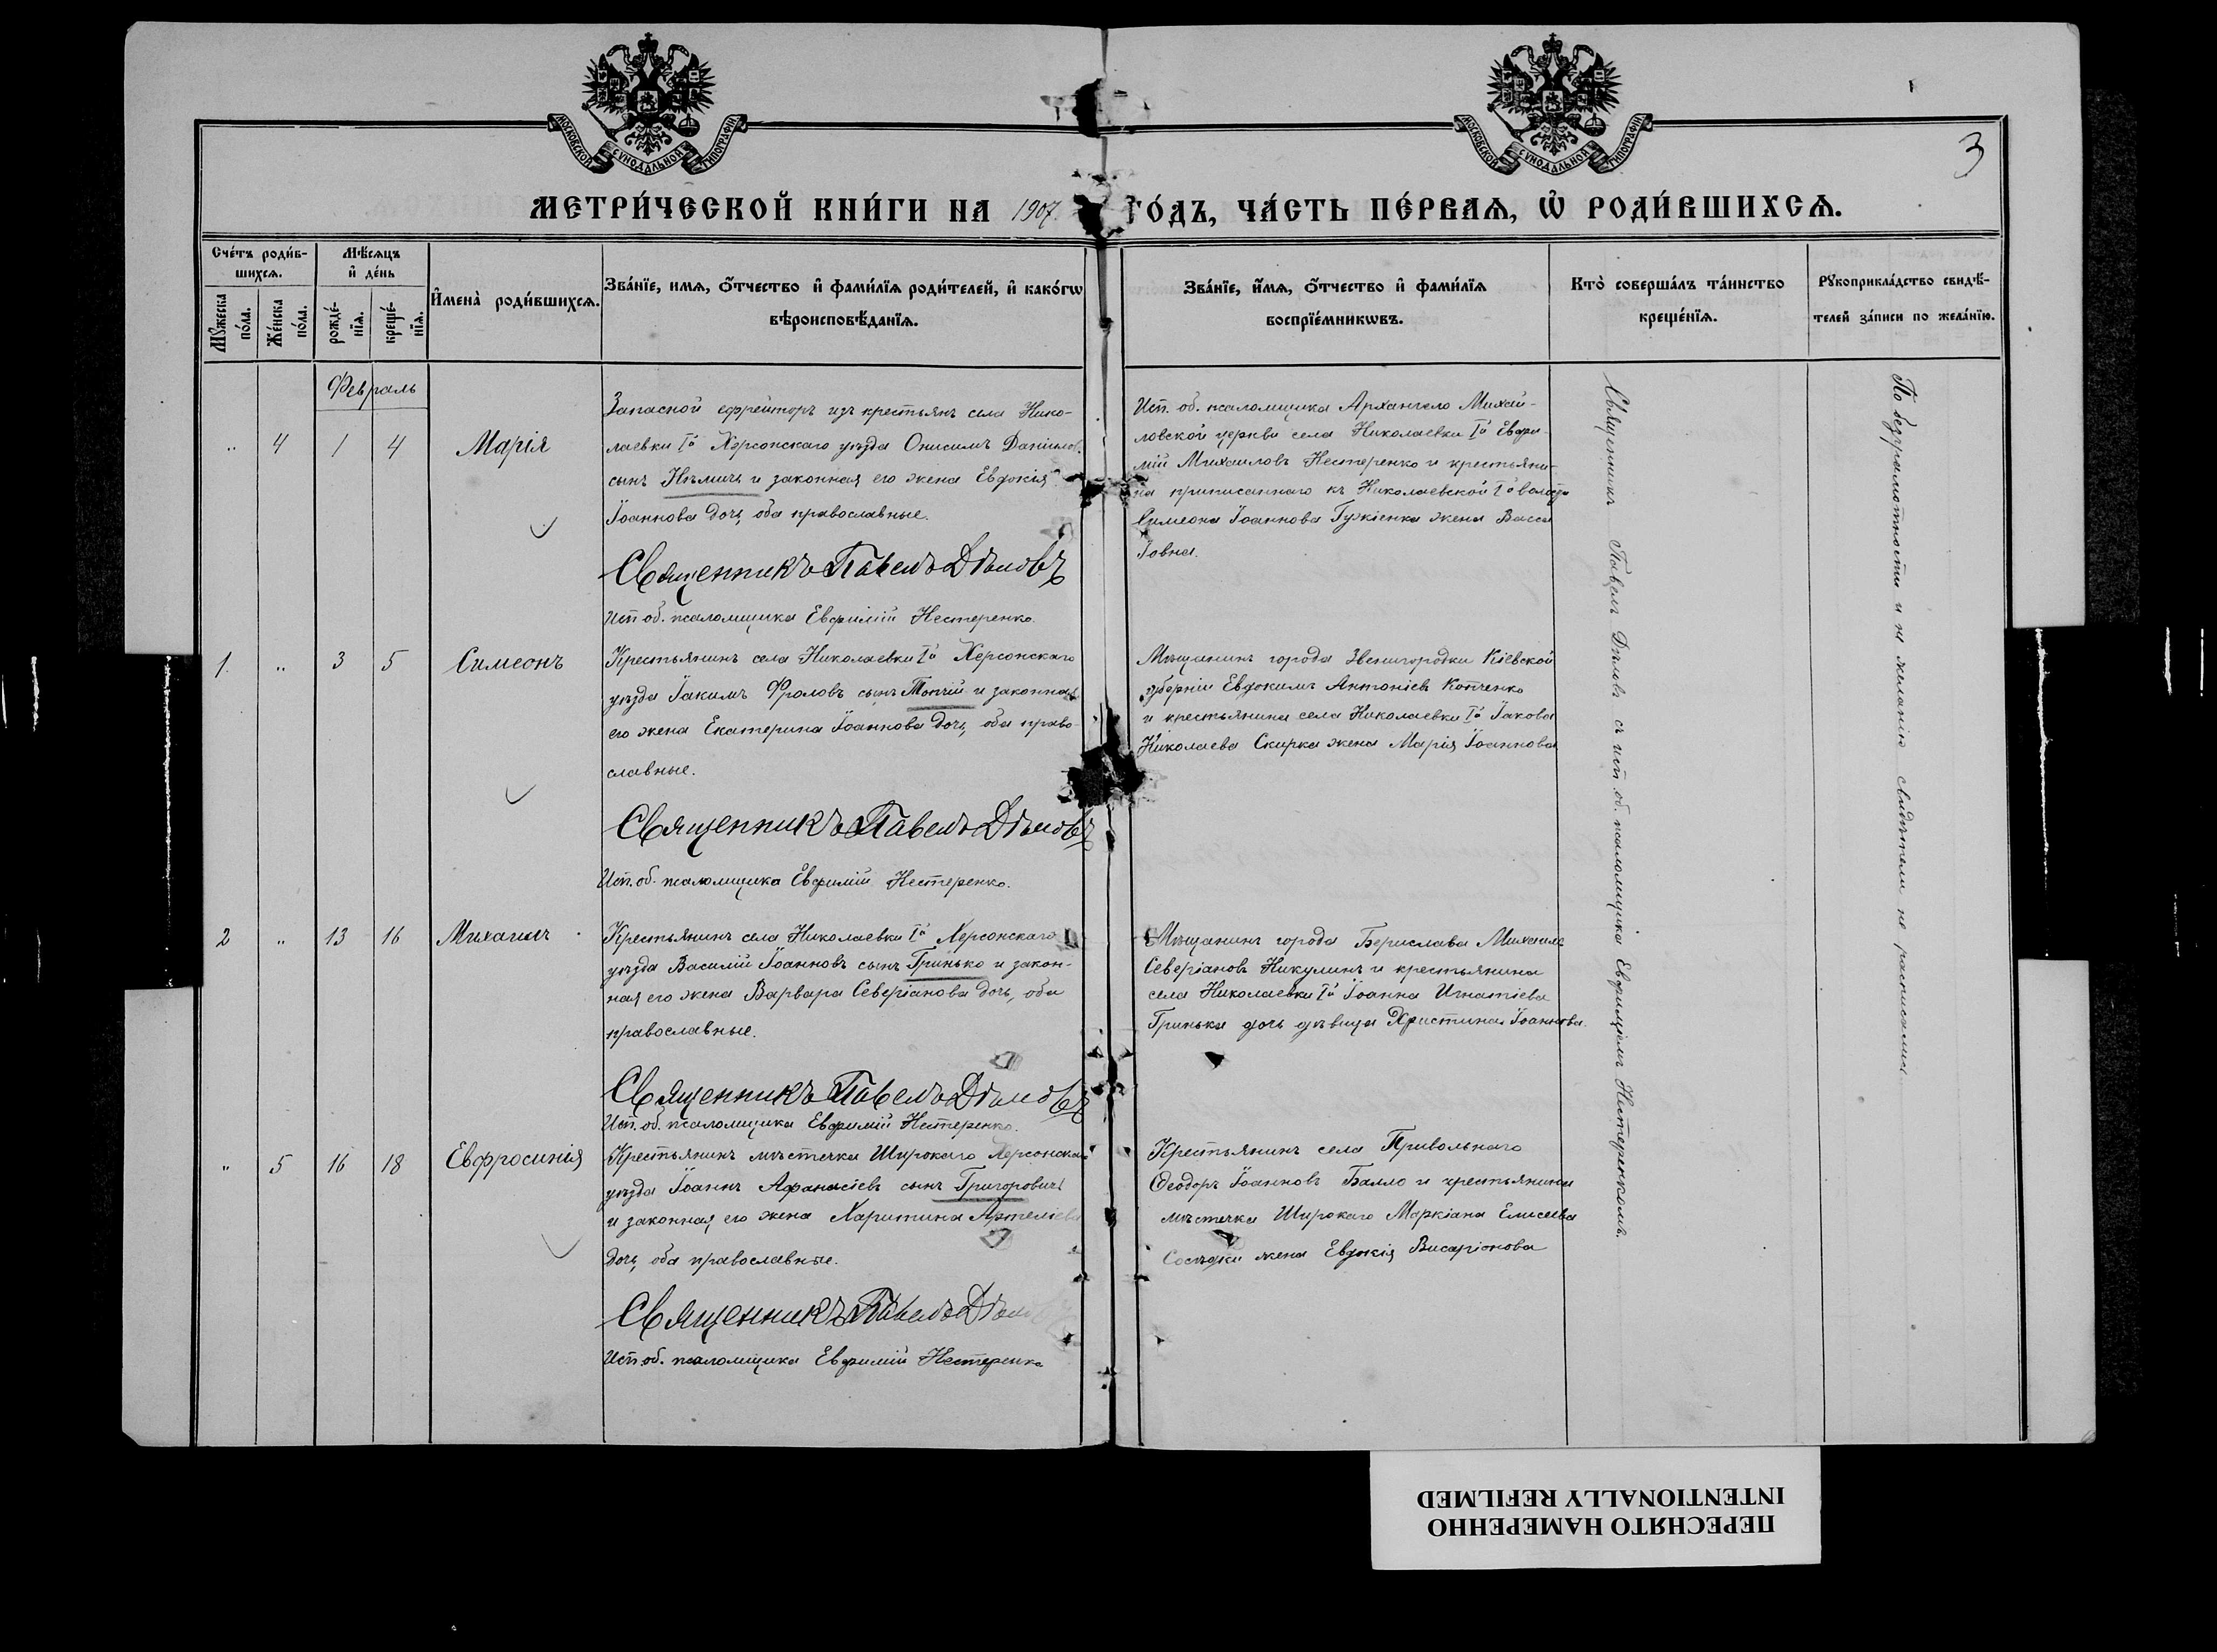 МОСКОВСКОЙ СѴНОДАЛЬНОЙ ТИПОГРАФІИ
МОСКОВСКОЙ СѴНОДАЛЬНОЙ ТИПОГРАФІИ
3
МЕТРИ́ЧЕСКОЙ КНИ́ГИ НА 1907 ГО́ДЪ, ЧА́СТЬ ПЕ́РВАѦ, Ѡ҆ РОДИ́ВШИХСѦ.
Сче́тъ роди́в-
шихсѧ.
Мꙋ́жеска
по́ла.
Же́нска
по́ла.
Мѣ́сѧцъ
и҆ де́нь
рожде́-
нїѧ.
креще́-
нїѧ.
И҆мена̀ роди́вшихсѧ.
Зва́нїе, имѧ, ѻ҆́тчество и҆ фами́лїѧ роди́телей, и҆ како́гѡ
вѣроисповѣ́данїѧ.
Зва́нїе, и҆́мѧ, ѻ҆́тчество и҆ фами́лїѧ
воспрїе́мникѡвъ.
Кто̀ соверша́лъ та́инство
креще́нїѧ.
Рꙋкоприкла́дство свидѣ́-
телей за́писи по жела́нїю.
Февраль
" 4 1 4 Марія
Запасной ефрейторъ изъ крестьянъ села Нико-
лаевки Iй Херсонскаго уѣзда Онисимъ Даніилов.
сынъ Нѣмичъ и законная его жена Евдокія
Іоаннова дочь, оба православные.
Священникъ Павелъ Дѣловъ
Исп. об. псаломщика Евфимій Нестеренко.
Исп. об. псаломщика Архангело Михай-
ловской церкви села Николаевки Iй Евфи-
мій Михаиловъ Нестеренко и крестьяни-
на приписаннаго къ Николаевской Iй волости
Симеона Іоаннова Гужіенка жена Васса
Іовна.
1. " 3 5 Симеонъ
Крестьянинъ села Николаевки Iй Херсонскаго
уѣзда Іакимъ Фроловъ сынъ Топчій и законная
его жена Екатерина Іоаннова дочь, оба право-
славные.
Священникъ Павелъ Дѣловъ
Исп. об. псаломщика Евфимій Нестеренко.
Мѣщанинъ города Звенигородки Кіевской
губерніи Евдокимъ Антоніевъ Копченко
и крестьянина села Николаевки Iй Іакова
Николаева Скирка жена Марія Іоаннова
2 " 13 16 Михаилъ
Крестьянинъ села Николаевки Iй Херсонскаго
уѣзда Василій Іоанновъ сынъ Гринько и закон-
ная его жена Варвара Северіанова дочь, оба
православные.
Священникъ Павелъ Дѣловъ
Исп. об. псаломщика Евфимій Нестеренко.
Мѣщанинъ города Берислава Михаилъ
Северіановъ Никулинъ и крестьянина
села Николаевки Iй Іоанна Игнатіева
Гринька дочь дѣвица Христина Іоаннова.
" 5 16 18 Евфросинія
Крестьянинъ мѣстечка Широкаго Херсонскаго
уѣзда Іоаннъ Афанасіевъ сынъ Григоровичъ
и законная его жена Харитина Артеміева
дочь, оба православные.
Священникъ Павелъ Дѣловъ
Исп. об. псаломщика Евфимій Нестеренко
Крестьянинъ села Привольнаго
Ѳеодоръ Іоанновъ Балло и крестьянина
мѣстечка Широкаго Маркіана Елисеева
жена Евдокія Висаріонова
Священникъ Павелъ Дѣловъ съ исп. об. псаломщика Евфиміемъ Нестеренкомъ.
По безграмотности и не желанію свидѣтели не расписались.
ПЕРЕСНЯТО НАМЕРЕННО
INTENTIONALLY REFILMED